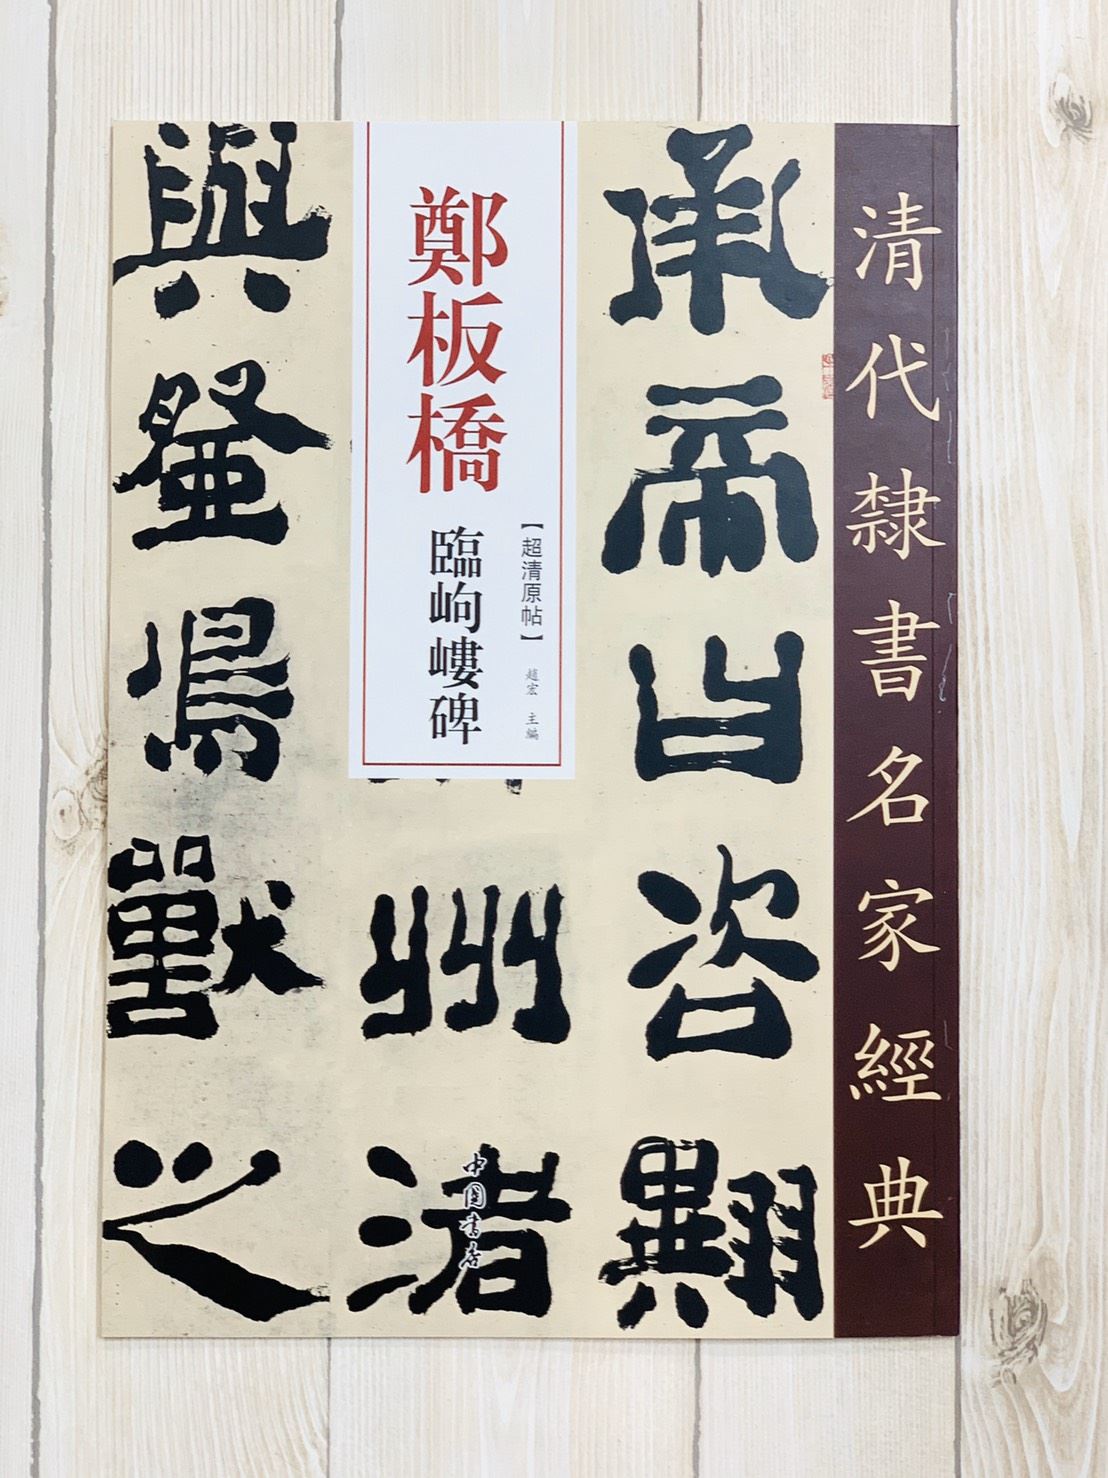 清代隸書名家經典
承帝曰咨翼
【超清原帖】
趙宏 主編
鄭板橋
臨岣嶁碑
州渚
與登鳥獸之
中国书店